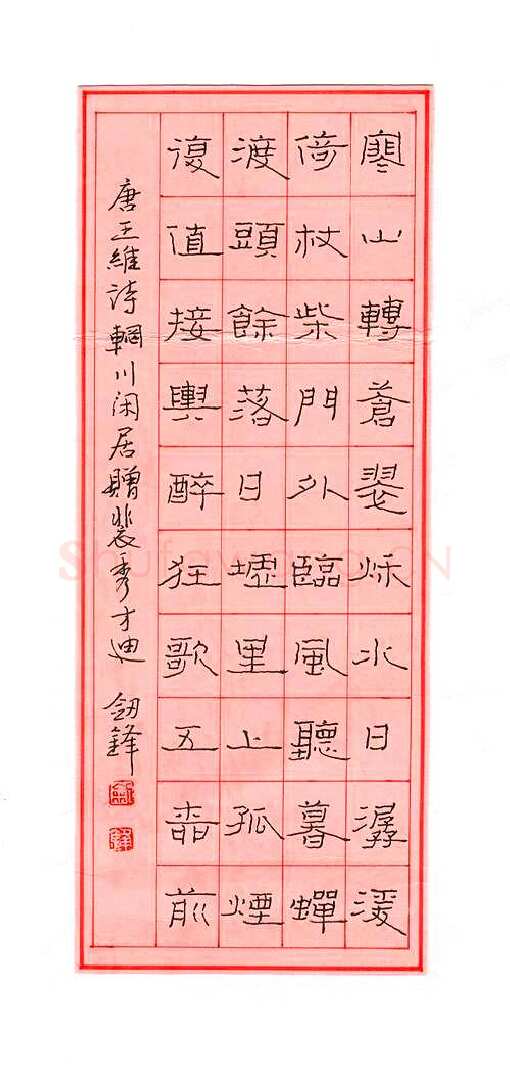 寒山轉蒼翠秋水日潺湲
倚杖柴門外臨風聽暮蟬
渡頭餘落日墟里上孤煙
復值接輿醉狂歌五柳前
唐王維詩輞川闲居贈裴秀才迪 釼鋒